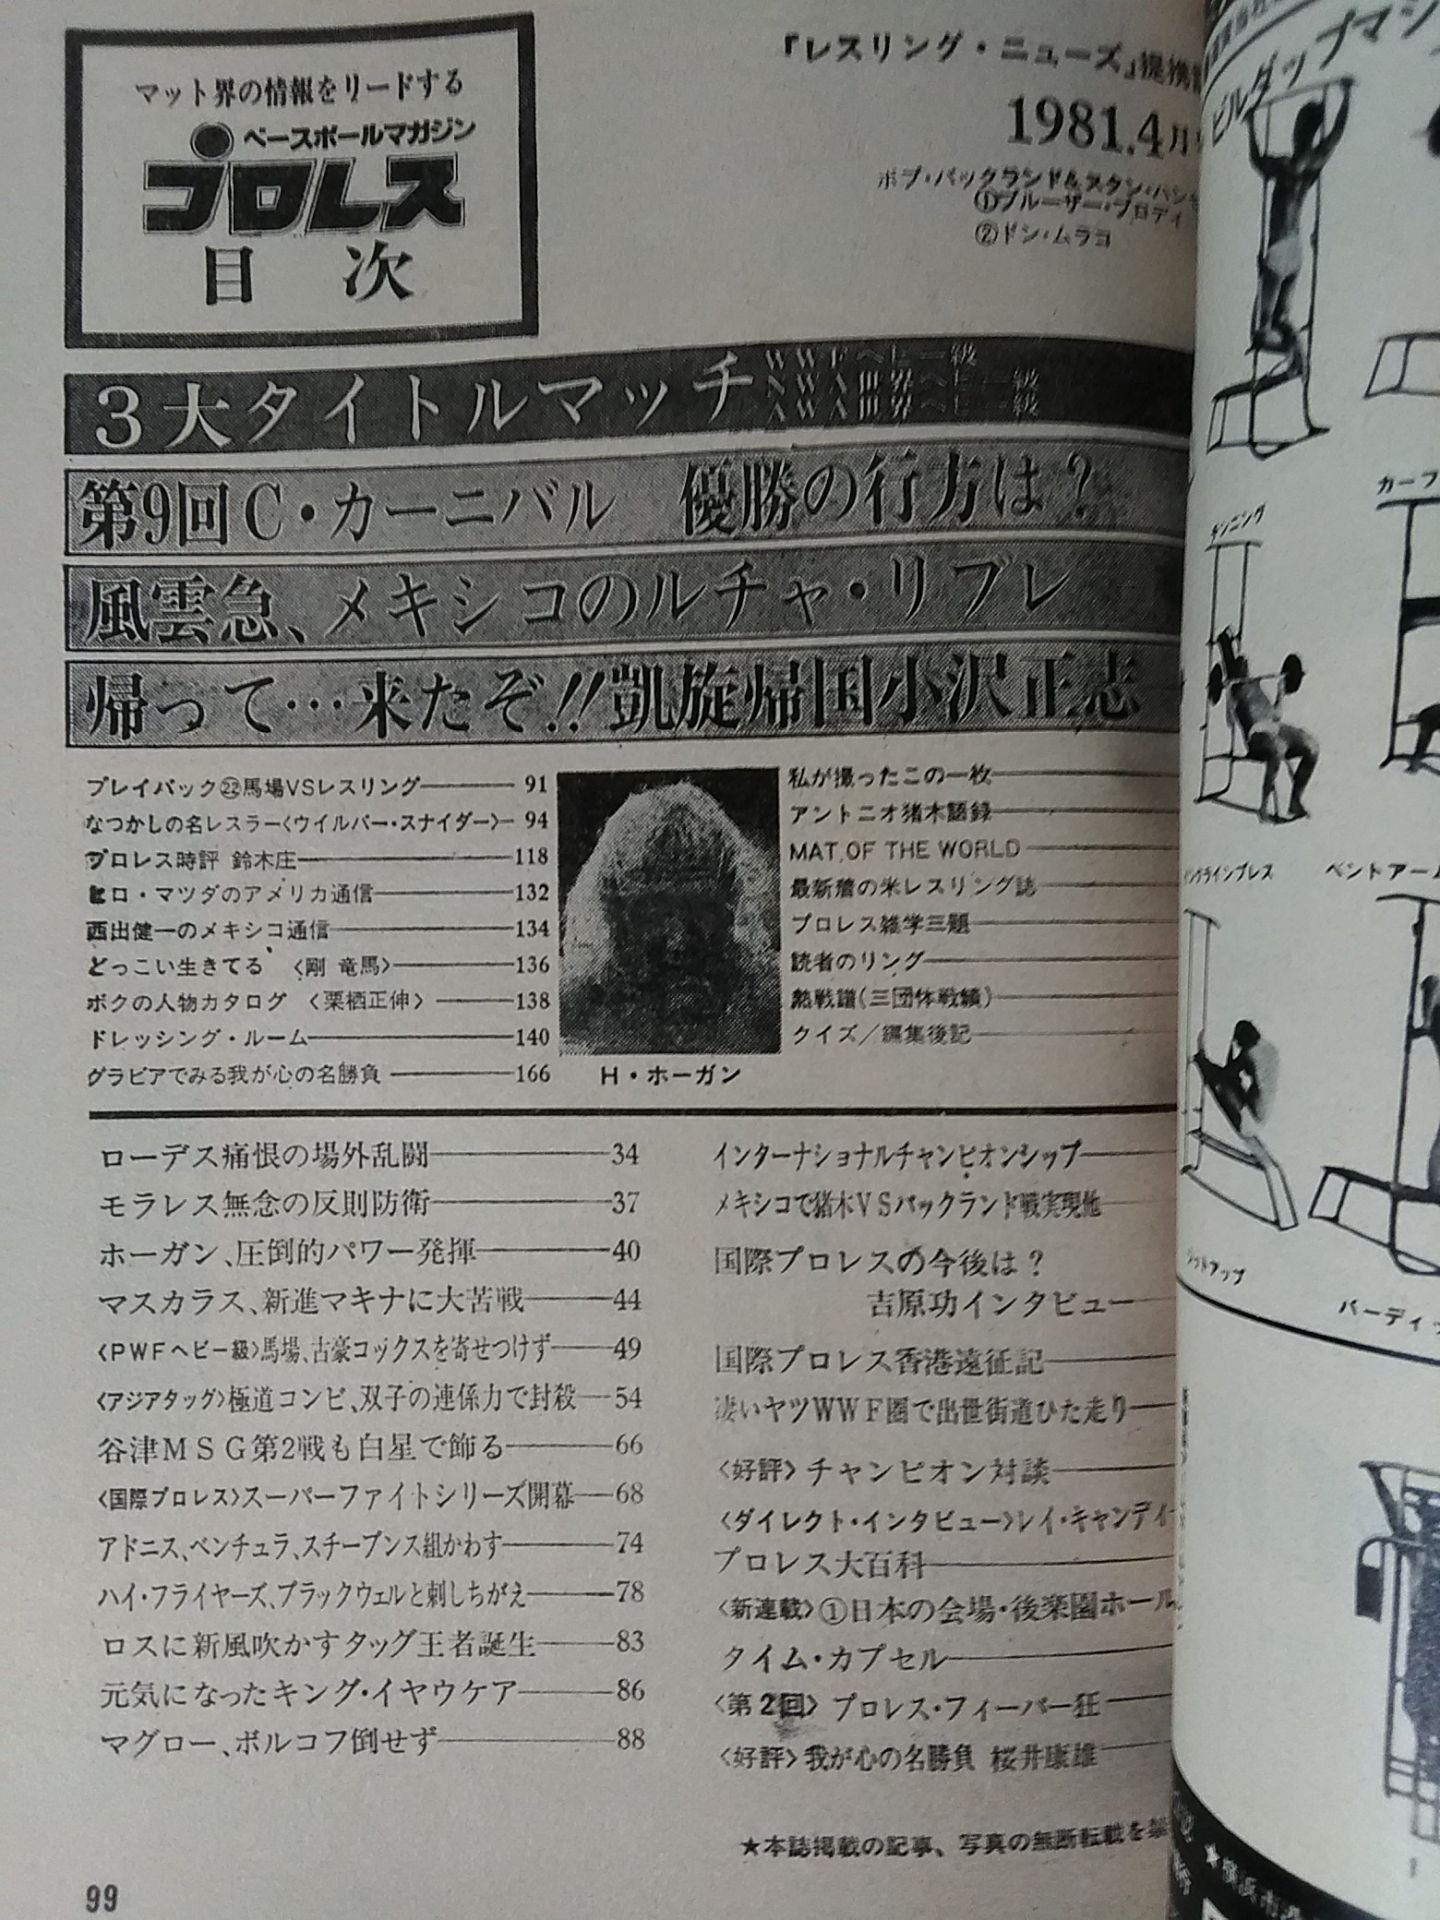 マット界の情報をリードする
ベースボールマガジン
プロレス
目次
『レスリング・ニューズ』提携
1981.4月
ボブ・バックランド&スタン・ハンセ
①ブルーザー・ブロディ
②ドン・ムラコ
3大タイトルマッチ
WWFヘビー級
NWA世界ヘビー級
AWA世界ヘビー級
第9回C・カーニバル 優勝の行方は?
風雲急、メキシコのルチャ・リブレ
帰って…来たぞ!!凱旋帰国小沢正志
プレイバック㉒馬場VSレスリング 91
なつかしの名レスラー〈ウイルバー・スナイダー〉 94
プロレス時評 鈴木庄一 118
ヒロ・マツダのアメリカ通信 132
西出健一のメキシコ通信 134
どっこい生きてる 〈剛 竜馬〉 136
ボクの人物カタログ 〈栗栖正伸〉 138
ドレッシング・ルーム 140
グラビアでみる我が心の名勝負 166
H・ホーガン
私が撮ったこの一枚
アントニオ猪木語録
MAT OF THE WORLD
最新着の米レスリング誌
プロレス雑学三題
読者のリング
熱戦譜(三団体戦績)
クイズ/編集後記
ローデス痛恨の場外乱闘 34
モラレス無念の反則防衛 37
ホーガン、圧倒的パワー発揮 40
マスカラス、新進マキナに大苦戦 44
〈PWFヘビー級〉馬場、古豪コックスを寄せつけず 49
〈アジアタッグ〉極道コンビ、双子の連係力で封殺 54
谷津MSG第2戦も白星で飾る 66
〈国際プロレス〉スーパーファイトシリーズ開幕 68
アドニス、ベンチュラ、スチーブンス組かわす 74
ハイ・フライヤーズ、ブラックウェルと刺しちがえ 78
ロスに新風吹かすタッグ王者誕生 83
元気になったキング・イヤウケア 86
マグロー、ボルコフ倒せず 88
インターナショナルチャンピオンシップ
メキシコで猪木VSバックランド戦実現他
国際プロレスの今後は?
吉原功インタビュー
国際プロレス香港遠征記
凄いヤツWWF圏で出世街道ひた走り
〈好評〉チャンピオン対談
〈ダイレクト・インタビュー〉レイ・キャンディ
プロレス大百科
〈新連載〉①日本の会場・後楽園ホール
タイム・カプセル
〈第2回〉プロレス・フィーバー狂
〈好評〉我が心の名勝負 桜井康雄
★本誌掲載の記事、写真の無断転載を禁
99
ビルダップマシ
チンニング
カーフ
インクラインプレス
ベントアーム
シットアップ
バーディッ
★横浜市港